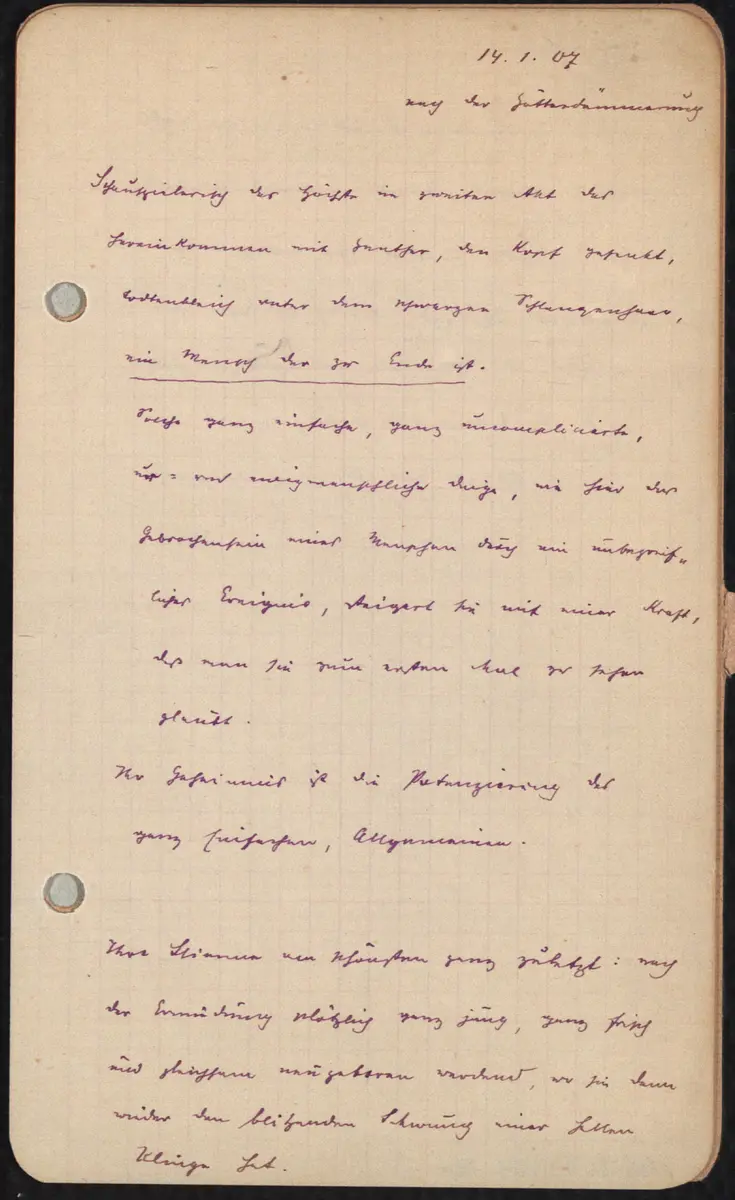 14. 1. 07
nach der Götterdämmerung
Schauspielerisch das Höchste im zweiten Akt das
Hereinkommen mit Gunther, den Kopf gesenkt,
todtenbleich unter dem schwarzen Schlangenhaar,
ein Mensch der zu Ende ist.
Solche ganz einfache, ganz uncomplicierte,
ur= und ewigmenschliche Dinge, wie hier das
Gebrochensein eines Menschen durch ein unbegreif„
liches Ereignis, steigert sie mit einer Kraft,
daß man sie zum ersten Mal zu sehen
glaubt.
Ihr Geheimnis ist die Potenzierung des
ganz Einfachen, Allgemeinen.
Ihre Stimme am schönsten ganz zuletzt: nach
der Ermüdung plötzlich ganz jung, ganz frisch
und gleichsam neugeboren werdend, wo sie dann
wieder den blitzenden Schwung einer hellen
Klinge hat.